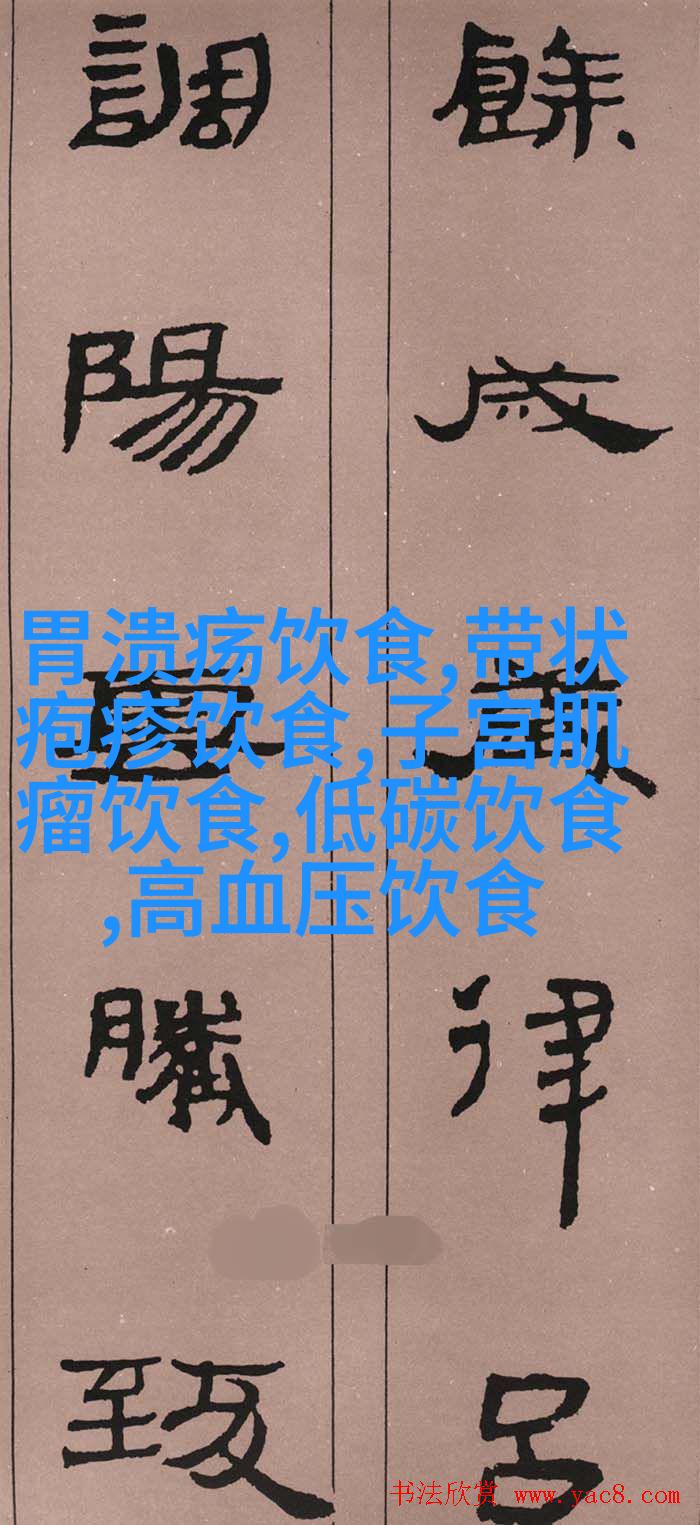 餘成歲律呂
調陽雲騰致
胃溃疡饮食,带状
疱疹饮食,子宫肌
瘤饮食,低碳饮食
,高血压饮食
书法欣赏 www.yac8.com